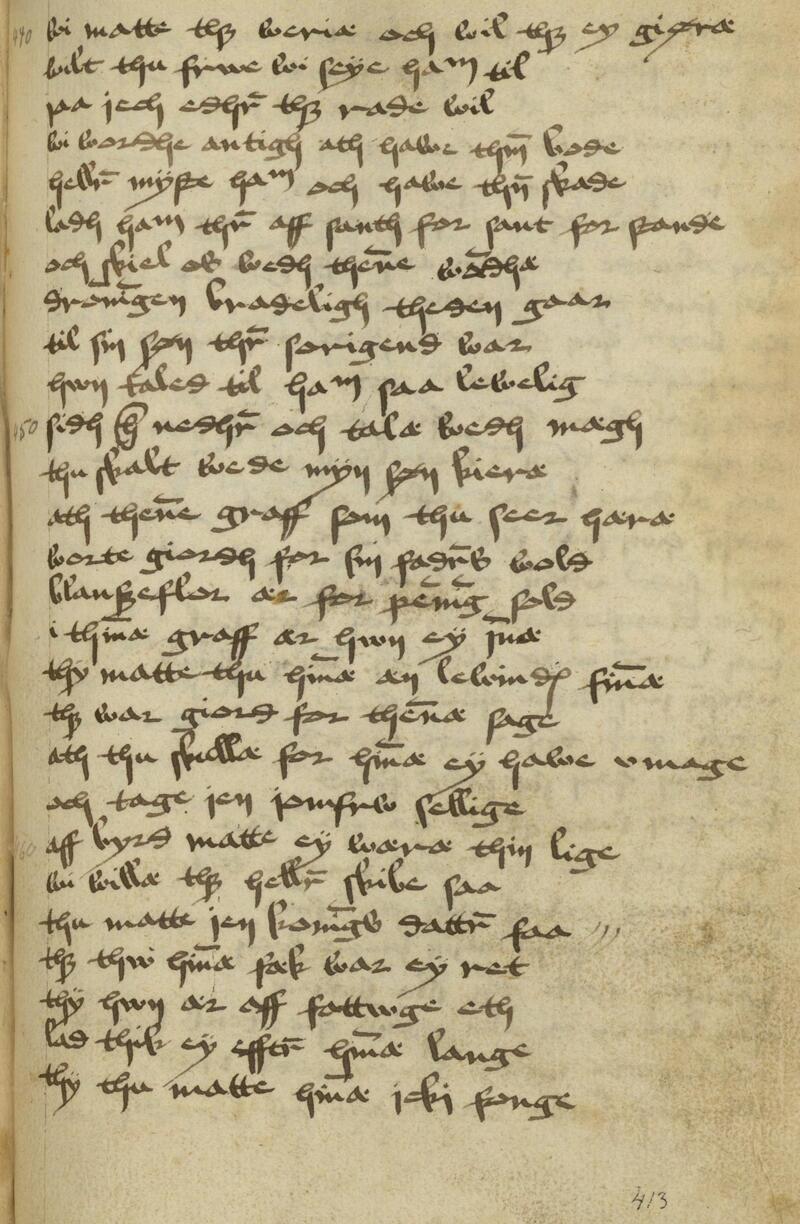 440 wi matte thꝫ weriæ och wil thꝫ ey giøræ
wilt thu frwe wi seye ham til
paa jech edhr̄ thꝫ rade wil
wi wordhe antigh ath hawe thin̄ bode
hellr̄ myste ham och hawe thn̄ skade
ladh ham thr̄ aff santh for sant for stande
och skiel os wedh then̄e wādhæ
dron̄īgen bradeligh theden gaar
til sin søn thr̄ sørigend war
hwn taled til ham saa lewelig
450 sidh nedhr̄ och talæ wedh mægh
thu skalt wede myn søn kieræ
ath then̄e graff som thu seer hæræ
worte giordh for sin fadr̄s wold
blanszeflor ær for pen̄īg sold
i thin̄æ graff ær hwn ey in̄æ
thy matte thu hin̄æ æn lewind fin̄æ
thꝫ war giord for then̄æ sage
ath thu skullæ for hin̄æ ey hawe vmage
och tage jen jomfrw sellige
460 aff byrd matte ey wæræ thin lige
wi willæ thꝫ hellr̄ skibe saa
thu matte jen kon̄īgs dattr̄ faa
thꝫ thw hin̄æ fæk war ey ret
thy hwn ær aff fattwge eth
lad thik ey efftr̄ hin̄æ lange
thy thu matte hin̄æ jcki fonge
413